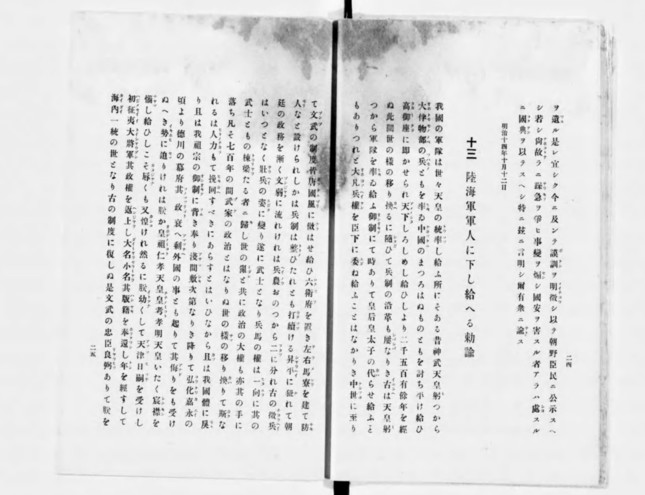 ヲ遺ル是レ宜シク今ニ及ンテ謨訓ヲ明徴シ以テ朝野臣民ニ公示スヘ
シ若シ尚故ラニ躁急ヲ爭ヒ事變ヲ煽シ國安ヲ害スル者アラハ處スル
ニ國典ヲ以テスヘシ特ニ茲ニ言明シ爾有衆ニ諭ス
明治十四年十月十二日
十三 陸海軍軍人に下し給へる勅諭
我國の軍隊は世々天皇の統率し給ふ所にそある昔神武天皇躬つから
大伴物部の兵ともを率ゐ中國のまつろはぬものともを討ち平け給ひ
高御座に即かせられて天下しろしめし給ひしより二千五百有餘年を經
ぬ此間世の樣の移り換るに隨ひて兵制の沿革も屢なりき古は天皇躬
つから軍隊を率ゐ給ふ御制にて時ありては皇后皇太子の代らせ給ふこと
もありつれと大凡兵權を臣下に委ね給ふことはなかりき中世に至り
二四
て文武の制度皆唐國風に傚はせ給ひ六衛府を置き左右馬寮を建て防
人なと設けられしかは兵制は整ひたれとも打續ける昇平に狃れて朝
廷の政務も漸く文弱に流れけれは兵農おのつから二に分れ古の徴兵
はいつとなく壯兵の姿に變り遂に武士となり兵馬の權は一向に其の
武士ともの棟梁たる者に歸し世の亂と共に政治の大權も亦其の手に
落ち凡そ七百年の間武家の政治とはなりぬ世の樣の移り換りて斯な
れるは人力もて挽回すへきにあらすとはいひなから且は我國體に戻
り且は我祖宗の御制に背き奉り淺間敷次第なりき降りて弘化嘉永の
頃より德川の幕府其政衰へ剩外國の事とも起りて其侮りをも受け
ぬへき勢に迫りけれは朕か皇祖仁孝天皇皇考孝明天皇いたく宸襟を
惱し給ひしこそ辱くも又惶けれ然るに朕幼くして天津日嗣を受けし
初征夷大將軍其政權を返上し大名小名其版籍を奉還し年を經すして
海內一統の世となり古の制度に復しぬ是文武の忠臣良弼ありて朕を
二五